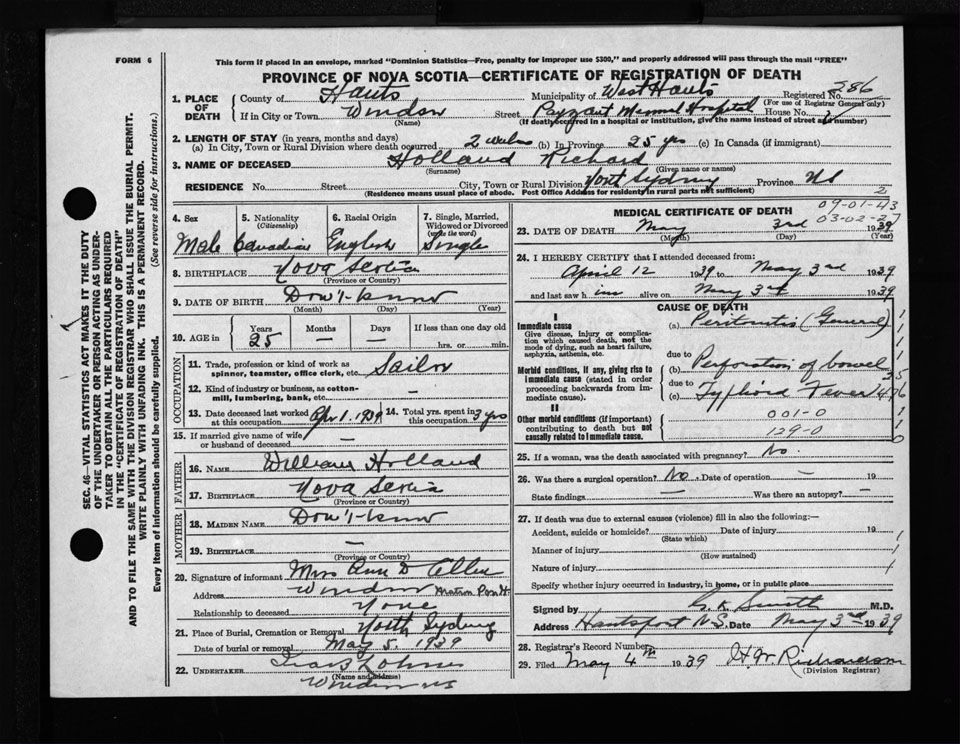 FORM 6
This form if placed in an envelope, marked "Dominion Statistics—Free, penalty for improper use $300," and properly addressed will pass through the mail "FREE"
PROVINCE OF NOVA SCOTIA—CERTIFICATE OF REGISTRATION OF DEATH
286
1. PLACE OF DEATH County of Hants Municipality of West Hants Registered No.
(For use of Registrar General only)
If in City or Town Windsor Street Payzant Memorial Hospital House No.
(Name) (If death occurred in a hospital or institution, give the name instead of street and number)
2. LENGTH OF STAY (in years, months and days)
(a) In City, Town or Rural Division where death occurred 2 (b) In Province 25 yrs (c) In Canada (if immigrant)
3. NAME OF DECEASED Holland Richard
(Surname) (Given name or names)
RESIDENCE No. Street City, Town or Rural Division North Sydney Province NS
(Residence means usual place of abode. Post Office Address for residents in rural parts not sufficient) 2
4. Sex
Male
5. Nationality
(Citizenship)
Canadian
6. Racial Origin
English
7. Single, Married,
Widowed or Divorced
(write the word)
Single
8. BIRTHPLACE Nova Scotia
(Province or Country)
9. DATE OF BIRTH Don't know
(Month) (Day) (Year)
10. AGE in
Years Months Days If less than one day old
25 — — hrs. or min.
OCCUPATION
11. Trade, profession or kind of work as
spinner, teamster, office clerk, etc. Sailor
12. Kind of industry or business, as cotton-
mill, lumbering, bank, etc. —
13. Date deceased last worked
at this occupation Apr 1. 1939 14. Total yrs. spent in
this occupation 3 yrs
15. If married give name of wife
or husband of deceased —
FATHER
16. NAME William Holland
17. BIRTHPLACE Nova Scotia
(Province or Country)
MOTHER
18. MAIDEN NAME Don't know
19. BIRTHPLACE —
(Province or Country)
20. Signature of informant Miss Ann D Allen
Address Windsor Matron
Relationship to deceased None
21. Place of Burial, Cremation or Removal North Sydney
Date of burial or removal May 5. 1939
22. UNDERTAKER
(Name and address)
Windsor NS
MEDICAL CERTIFICATE OF DEATH
09-01-43
03-02-27
23. DATE OF DEATH May 3rd 1939
(Month) (Day) (Year)
24. I HEREBY CERTIFY that I attended deceased from:
April 12 1939 to May 3rd 1939
and last saw him alive on May 3rd 1939
CAUSE OF DEATH
I
Immediate cause
Give disease, injury or complication
which caused death, not the
mode of dying, such as heart failure,
asphyxia, asthenia, etc.
(a) Peritonitis (General)
due to
Morbid conditions, if any, giving rise to
immediate cause (stated in order
proceeding backwards from immediate
cause)
(b) Perforation of bowel
due to
(c) Typhoid Fever
II
Other morbid conditions (if important)
contributing to death but not
causally related to immediate cause.
001-0
129-0
25. If a woman, was the death associated with pregnancy? No.
26. Was there a surgical operation? No. Date of operation — 19
State findings — Was there an autopsy? —
27. If death was due to external causes (violence) fill in also the following:—
Accident, suicide or homicide? Date of injury 19
(State which)
Manner of injury
(How sustained)
Nature of injury
Specify whether injury occurred in industry, in home, or in public place
Signed by G. K. Smith M.D.
Address Hantsport N.S. Date May 3rd 1939
28. Registrar's Record Number
29. Filed May 4th 1939 H W Richardson
(Division Registrar)
SEC. 46—VITAL STATISTICS ACT MAKES IT THE DUTY
OF THE UNDERTAKER OR PERSON ACTING AS UNDER-
TAKER TO OBTAIN ALL THE PARTICULARS REQUIRED
IN THE "CERTIFICATE OF REGISTRATION OF DEATH"
AND TO FILE THE SAME WITH THE DIVISION REGISTRAR WHO SHALL ISSUE THE BURIAL PERMIT.
WRITE PLAINLY WITH UNFADING INK. THIS IS A PERMANENT RECORD.
Every item of Information should be carefully supplied. (See reverse side for instructions.)